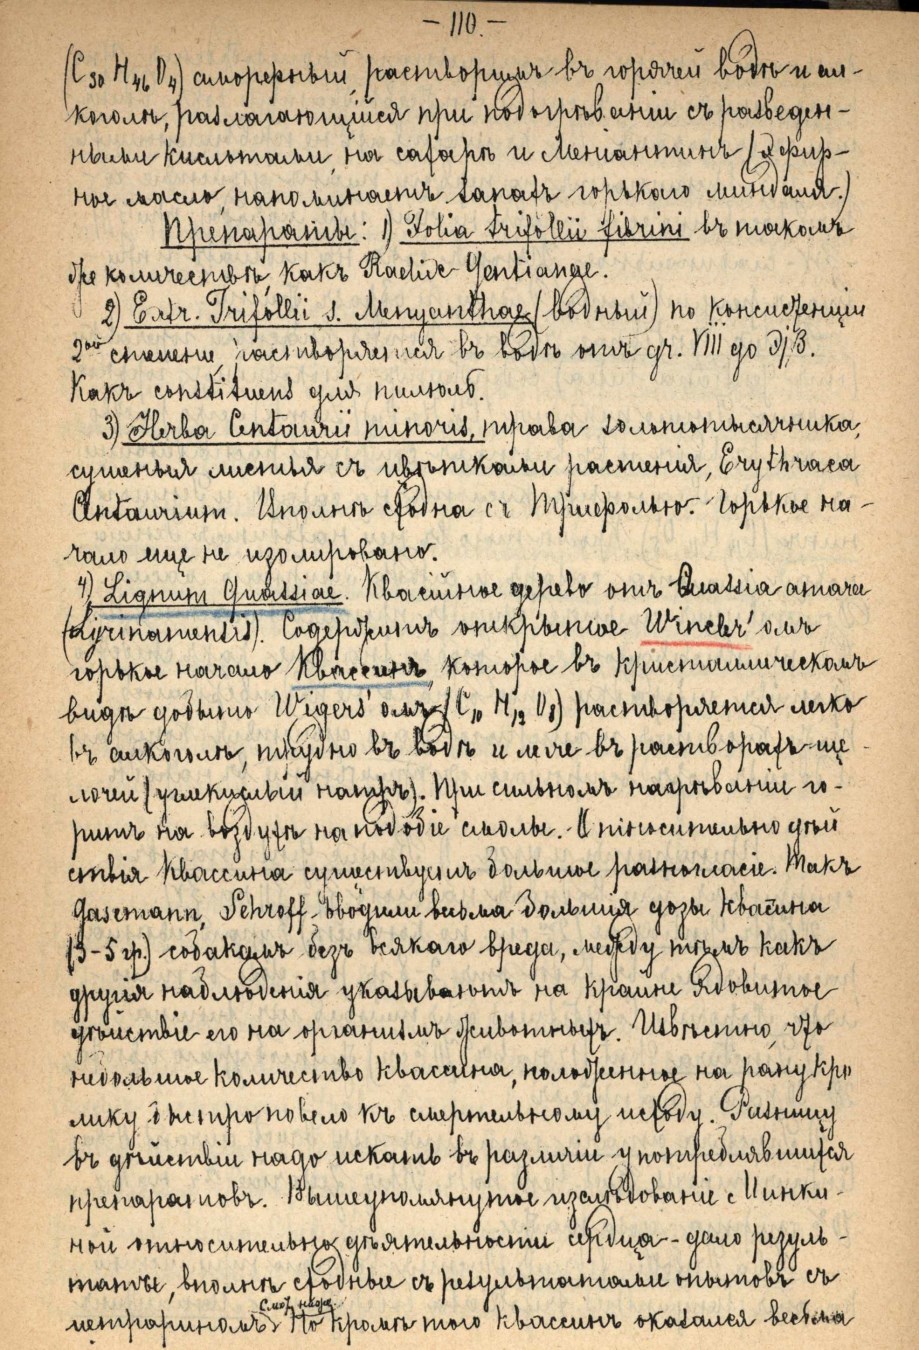 — 110. —
(C₃₀ H₄₆ O₄) аморфный, растворимъ въ горячей водѣ и ал-
коголѣ, разлагающійся при подогрѣваніи съ разведен-
ными кислотами, на сахаръ и Меніантинъ (эфир-
ное масло, напоминаетъ запахъ горькаго миндаля.)
Препараты: 1) Folia trifolii fibrini въ такомъ
же количествѣ, какъ Radix Gentianae.
2) Extr. Trifolii s. Menyanthae (водный) по консистенціи
2ой степени, растворяется въ водѣ отъ gr. VIII до Эj, 3.
Какъ constituens для пилюль.
3) Herba Centaurii minoris, трава золототысячника,
сушеныя листья съ цвѣтками растенія, Erythraea
Centaurium. Вполнѣ сходна съ Трифолью. Горькое на-
чало еще не изолировано.
4) Lignum Quassiae. Квассійное дерево отъ Quassia amara
(Syrinamensis). Содержитъ открытое Wincler'омъ
горькое начало Квассинъ, которое въ кристаллическомъ
видѣ добыто Wigers'омъ (C₁₀ H₁₂ O₃) растворяется легко
въ алкоголѣ, трудно въ водѣ и легче въ растворахъ ще-
лочей (углекислый натръ). При сильномъ нагрѣваніи го-
ритъ на воздухѣ на подобіе смолы. Относительно дѣй
ствія Квассина существуетъ большое разногласіе. Такъ
Gasemann, Sehroff вводили весьма большія дозы Квасина
(3-5 гр.) собакамъ безъ всякаго вреда, между тѣмъ какъ
другія наблюденія указываютъ на крайне ядовитое
дѣйствіе его на организмъ животныхъ. Извѣстно, что
небольшое количество квассина, положенное на рану кро
лику быстро повело къ смертельному исходу. Разницу
въ дѣйствіи надо искать въ различіи употреблявшихся
препаратовъ. Вышеупомянутое изслѣдованіе с
ной относительно дѣятельности сердца - дало резуль-
таты, вполнѣ сходные съ результатами опытовъ съ
цетрариномъ. Но кромѣ того квассинъ оказался весьма